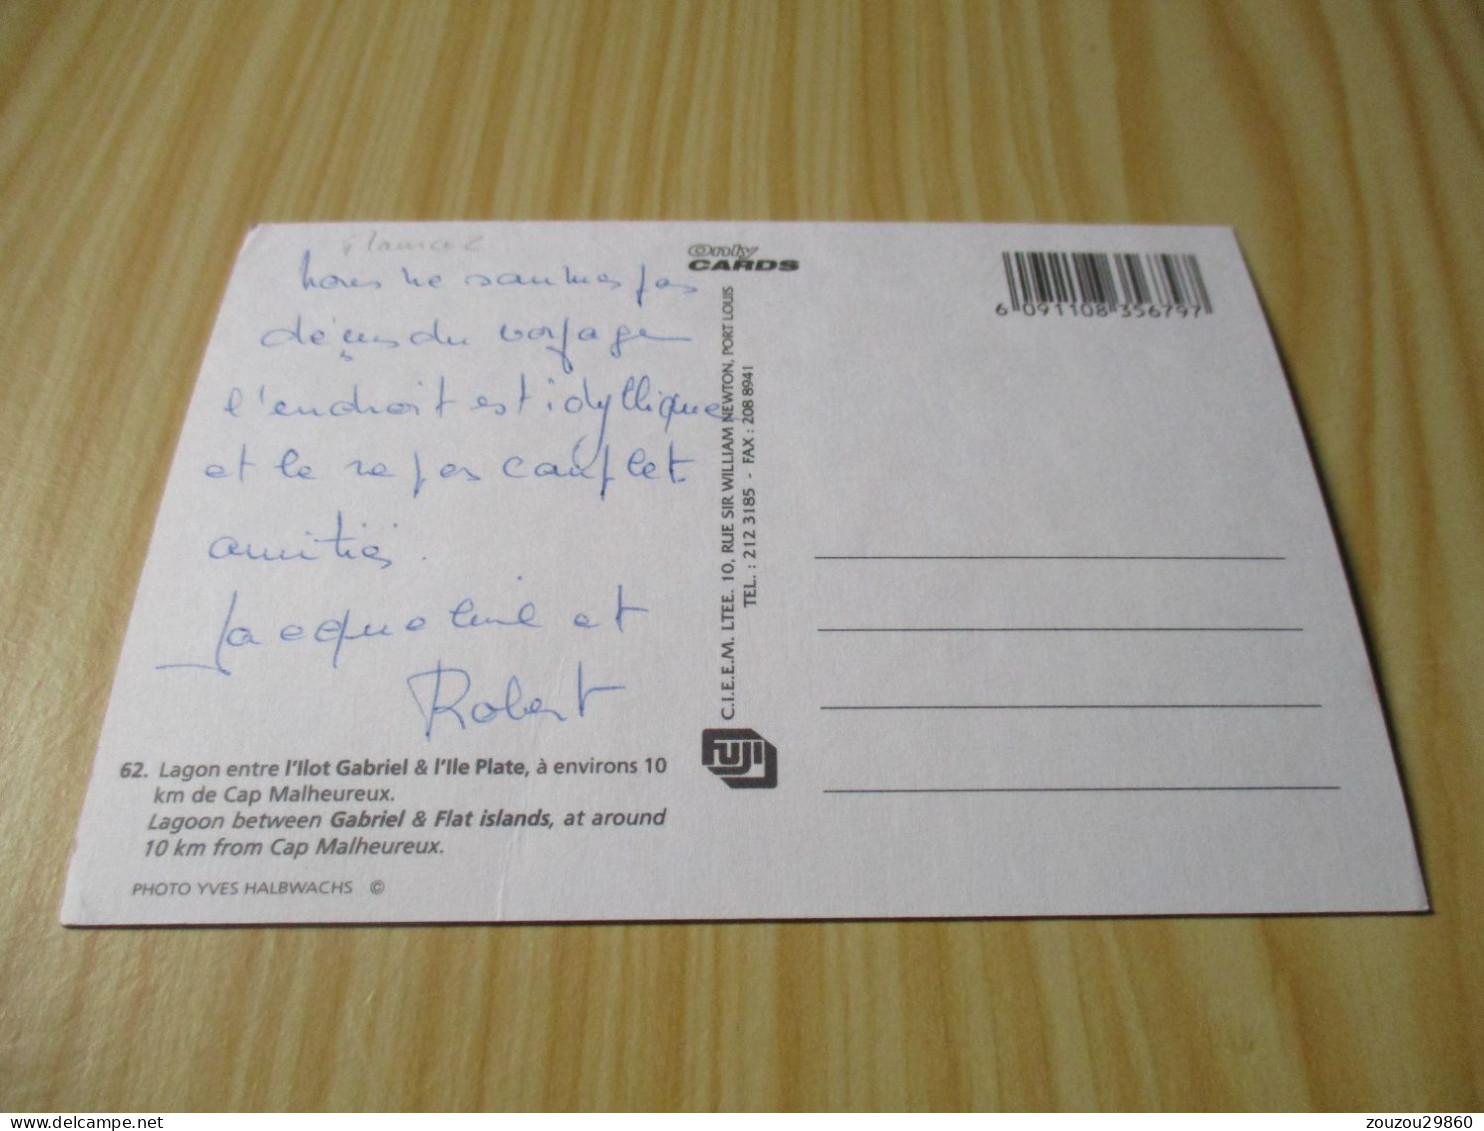 nous ne sommes pas
déçus du voyage
l'endroit est idyllique
et le repos complet.
amitiés.
Jacqueline et
Robert
62. Lagon entre l'Ilot Gabriel & l'Ile Plate, à environs 10
km de Cap Malheureux.
Lagoon between Gabriel & Flat islands, at around
10 km from Cap Malheureux.
PHOTO YVES HALBWACHS ©
Only
CARDS
C.I.E.E.M. LTEE. 10, RUE SIR WILLIAM NEWTON, PORT LOUIS
TEL. : 212 3185 - FAX : 208 8941
FUJI
6 091108 356797
zouzou29860